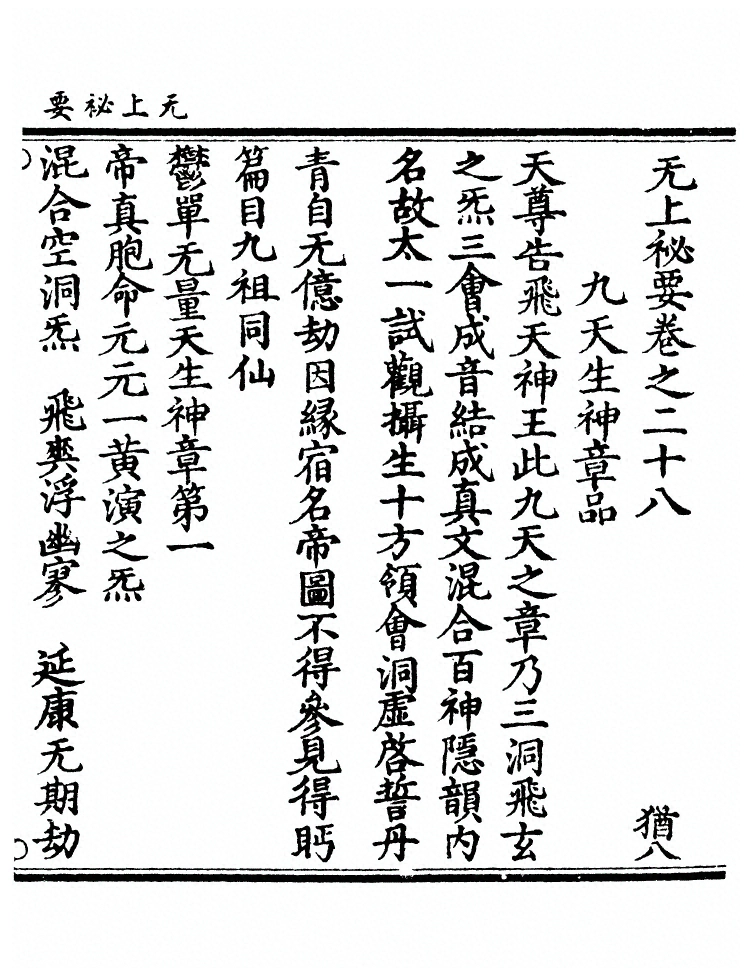 无上祕要
无上祕要卷之二十八 猶八
九天生神章品
天尊告飛天神王此九天之章乃三洞飛玄
之炁三會成音結成真文混合百神隱韻内
名故太一試觀攝生十方領會洞虛啓誓丹
青自无億劫因緣宿名帝圖不得參見得眄
篇目九祖同仙
鬱單无量天生神章第一
帝真胞命元元一黄演之炁
混合空洞炁 飛爽浮幽寥 延康无期劫